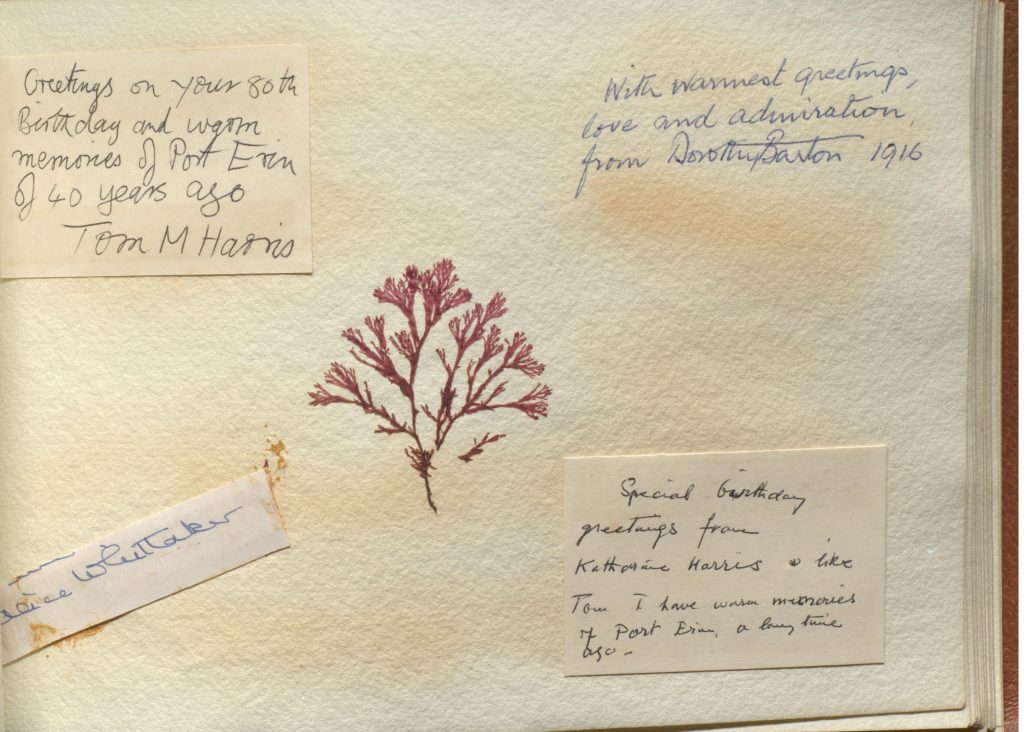 Greetings on your 80th
Birthday and warm
memories of Port Erin
of 40 years ago
Tom M Harris
With warmest greetings,
love and admiration,
from Dorothy Barton 1916
Whittaker
Special birthday
greetings from
Katharine Harris & like
Tom I have warm memories
of Port Erin, a long time
ago -